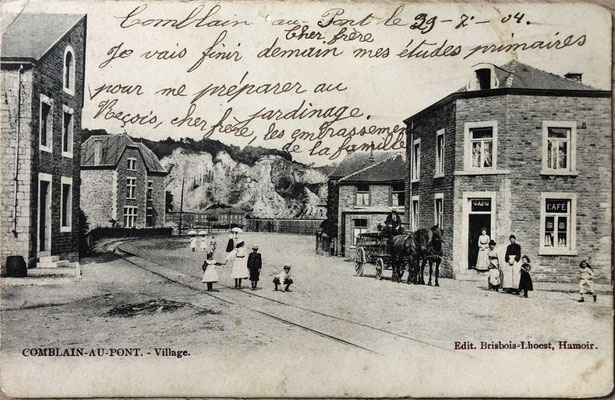 Comblain au Pont le 29-7-04.
Cher frère
Je vais finir demain mes études primaires
pour me préparer au
jardinage.
Reçois, cher frère, les embrassements
de la famille
CAFÉ
COMBLAIN-AU-PONT. - Village.
Edit. Brisbois-Lhoest, Hamoir.